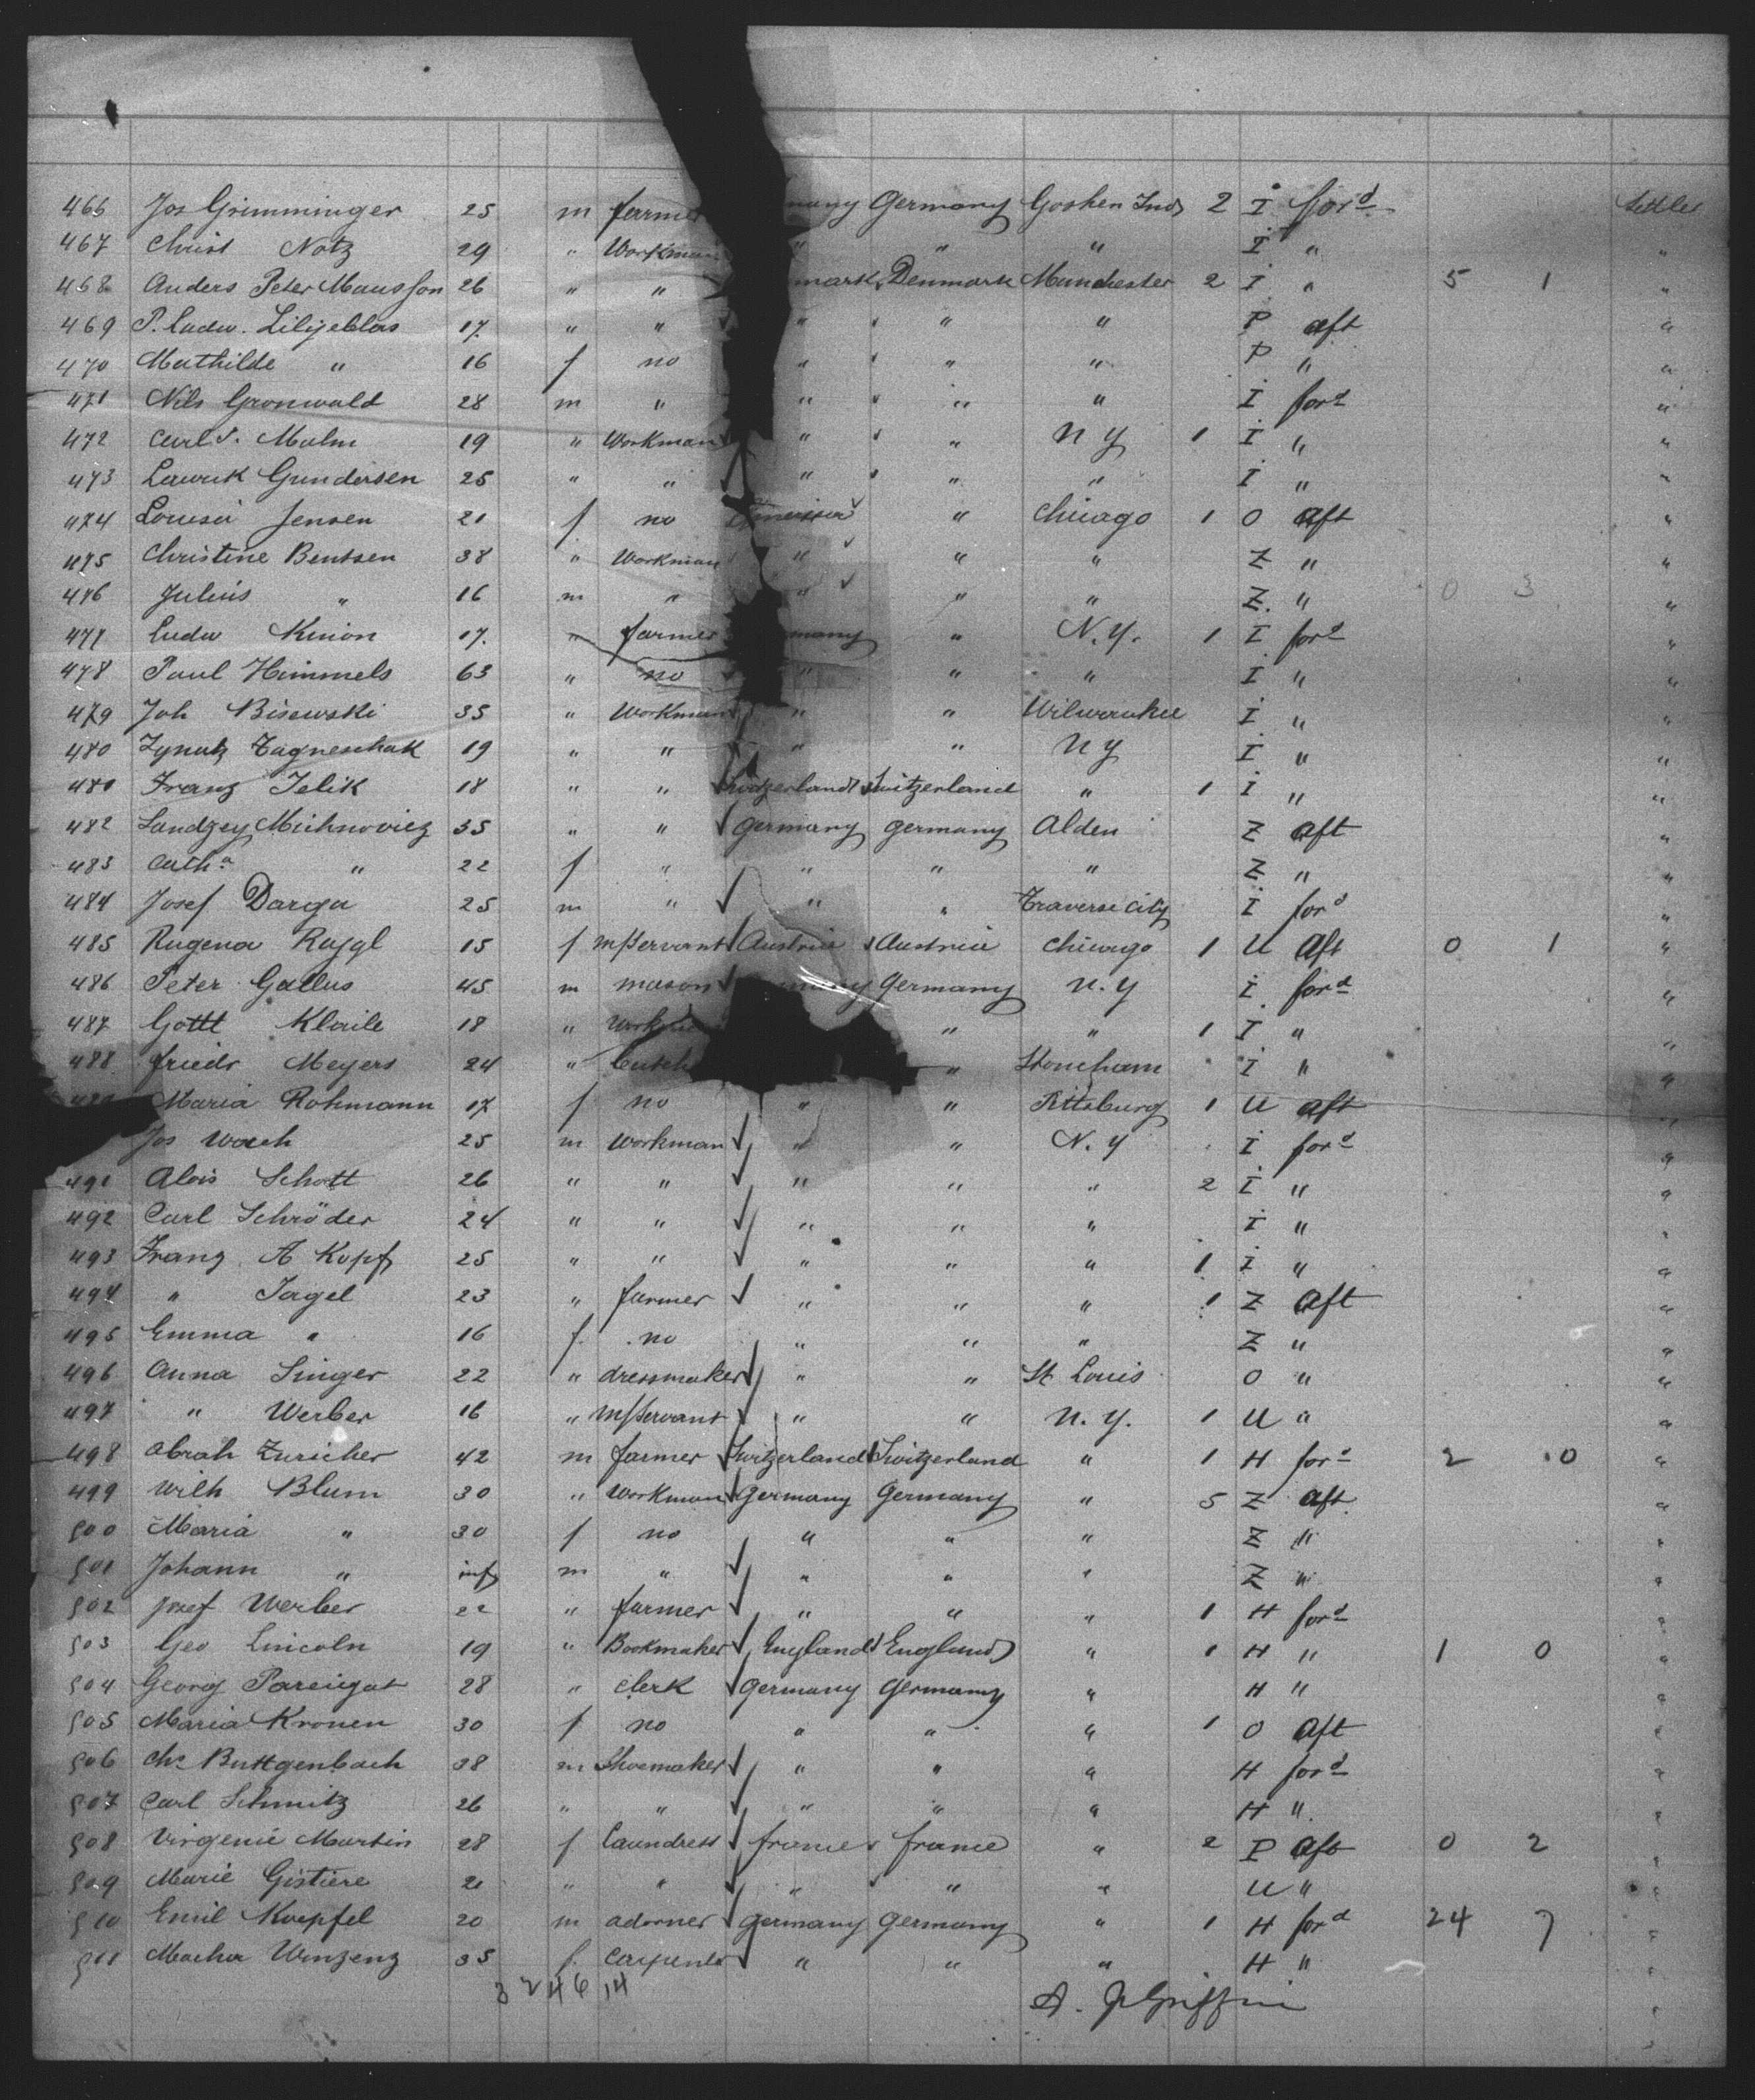 466 Jos Grimminger 25 m farmer many Germany Goshen Ind 2 I ford Settler
467 Christ Notz 29 " Workman " " " I " "
468 Anders Peter Mansson 26 " " mark Denmark Manchester 2 I " 5 1 "
469 P. Ludw. 17 " " " " " P aft "
470 Mathilde " 16 f no " " " P " "
471 Nils Gronwald 28 m " " " " I ford "
472 Carl Malm 19 " Workman " " N Y 1 I " "
473 Gundersen 25 " " " " " I " "
474 Jensen 21 f no " Chicago 1 O aft "
475 Christine Bentsen 38 " Workman " " " Z " "
476 Julius " 16 m " " " " Z. " 0 3 "
477 Ludw 17. " farmer many " N.Y. 1 I ford "
478 Paul Himmels 63 " no " " " I " "
479 Joh Bisewski 35 " Workman " " Milwaukee I " "
480 19 " " " " N Y I " "
481 Franz Jelik 18 " " Switzerland Switzerland " 1 I " "
482 35 " " Germany Germany Alden Z aft "
483 Cath.a " 22 f " " " " Z " "
484 Josef Darga 25 m " " " Traverse City I ford "
485 Rugena 15 f m/servant Austria Austria Chicago 1 U aft 0 1 "
486 Peter Gallus 45 m mason many Germany N.Y I ford "
487 Gottl Klaile 18 " " " 1 I " "
488 Friedr Meyers 24 " butch " Stoneham I " "
Maria Rohmann 17 f no " " Pittsburg 1 U aft "
Jos 25 m workman " " N.Y I ford "
491 Alois Schott 26 " " " " " 2 I " "
492 Carl Schröder 24 " " " " " I " "
493 Franz A Kopf 25 " " " " " 1 I " "
494 " Jagel 23 " farmer " " " 1 Z aft "
495 Emma " 16 f. no " " " Z " "
496 Anna Singer 22 " dressmaker " " St Louis O " "
497 " Werber 16 " m/servant " " N.Y. 1 U " "
498 Abrah Zuricher 42 m farmer Switzerland Switzerland " 1 H ford 2 0 "
499 Wilh Blum 30 " workman Germany Germany " 5 Z aft "
500 Maria " 30 f no " " " Z " "
501 Johann " inf m " " " " Z " "
502 Josef Werber 22 " farmer " " " 1 H ford "
503 Geo Lincoln 19 " Bookmaker England England " 1 H " 1 0 "
504 Georg 28 " clerk Germany Germany " H " "
505 Maria Kronen 30 f no " " " 1 O aft "
506 Chr Buttgenbach 38 m Shoemaker " " " H ford "
507 Carl Schmitz 26 " " " " " H " "
508 Virgenie Martin 28 f Laundress France France " 2 P aft 0 2 "
509 Marie Gistiere 21 " " " " " U " "
510 Emil 20 m adorner Germany Germany " 1 H ford 24 7 "
511 Winzenz 35 f. carpenter " " " H " "
3 2 4 6 14
A. J Griffin